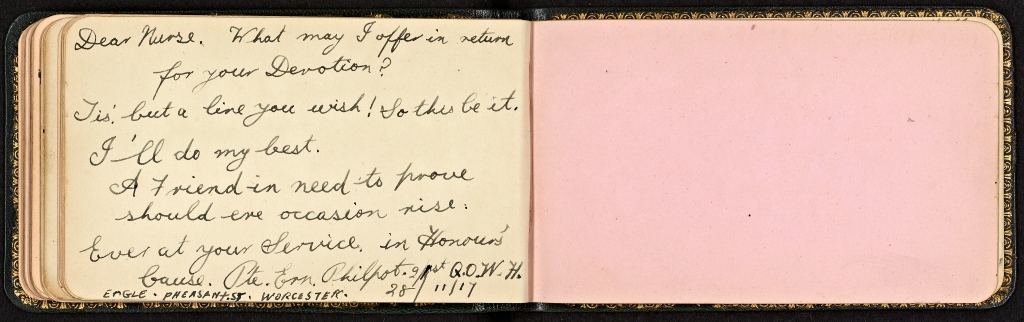 Dear Nurse. What may I offer in return
for your Devotion?
Tis' but a line you wish! So this be it.
I'll do my best.
A Friend in need to prove
should ere occasion rise.
Ever at your Service. in Honour's
Cause. Pte. Ern. Philpot. 2/1st Q.O.W.H.
EAGLE. PHEASANT. ST. WORCESTER. 28/11/17